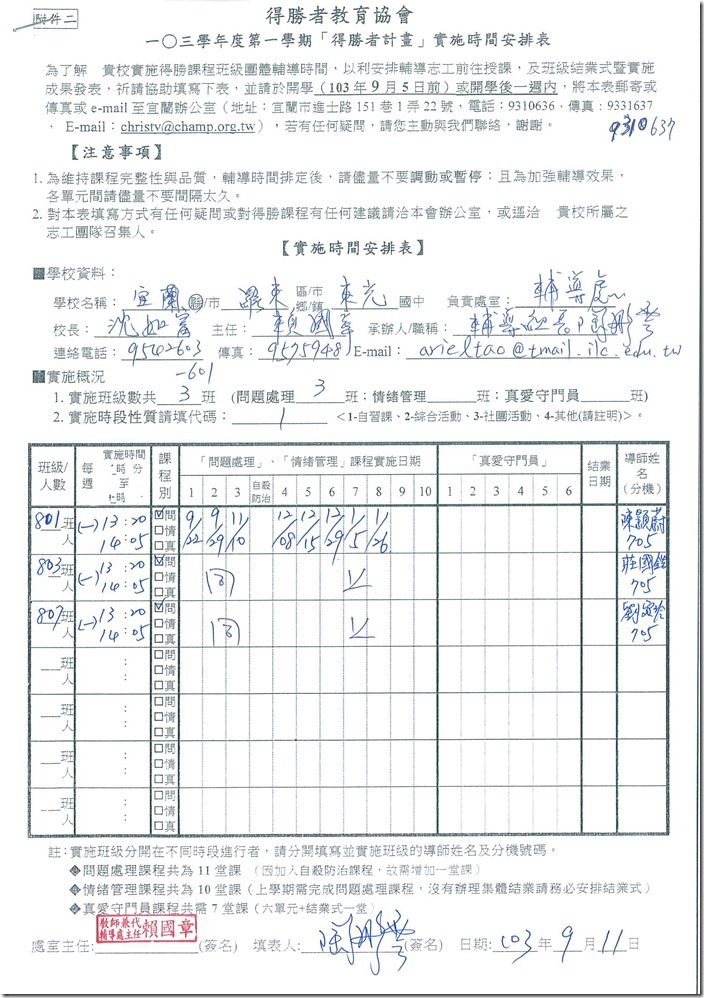 附件二
得勝者教育協會
一〇三學年度第一學期「得勝者計畫」實施時間安排表
為了解 貴校實施得勝課程班級團體輔導時間，以利安排輔導志工前往授課，及班級結業式暨實施
成果發表，祈請協助填寫下表，並請於開學(103年9月5日前)或開學後一週內，將本表郵寄或
傳真或 e-mail 至宜蘭辦公室（地址：宜蘭市進士路151巷1弄22號，電話：9310636，傳真：9331637
，E-mail：christy@champ.org.tw），若有任何疑問，請您主動與我們聯絡，謝謝。
9310637
【注意事項】
1. 為維持課程完整性與品質，輔導時間排定後，請儘量不要調動或暫停；且為加強輔導效果，
各單元間請儘量不要間隔太久。
2. 對本表填寫方式有任何疑問或對得勝課程有任何建議請洽本會辦公室，或逕洽 貴校所屬之
志工團隊召集人。
【實施時間安排表】
■學校資料：
學校名稱：宜蘭縣/市 羅東 區/市 鄉/鎮 東光 國中 負責處室：輔導處
校長：沈如富 主任：賴國章 承辦人/職稱：輔導組長
連絡電話：9542603 傳真：9575948 E-mail：arieltao@tmail.ilc.edu.tw
-601
■實施概況
1. 實施班級數共 3 班 (問題處理 3 班；情緒管理 班；真愛守門員 班)
2. 實施時段性質請填代碼： 1 <1-自習課、2-綜合活動、3-社團活動、4-其他(請註明)>。
班級/人數 每週 實施時間 時 分 至 時 課程別 「問題處理」、「情緒管理」課程實施日期 「真愛守門員」 結業日期 導師姓名(分機)
1 2 3 自殺防治 4 5 6 7 8 9 10 1 2 3 4 5 6
801班 人 (一) 13:20 14:05 ☑問 □情 □真 9/22 9/29 11/10 12/08 12/15 12/29 1/5 1/26 陳韻蔚 705
803班 人 (一) 13:20 14:05 ☑問 □情 □真 同 上 705
807班 人 (一) 13:20 14:05 ☑問 □情 □真 同 上 705
班 人 : : □問 □情 □真
班 人 : : □問 □情 □真
班 人 : : □問 □情 □真
班 人 : : □問 □情 □真
註：實施班級分開在不同時段進行者，請分開填寫並實施班級的導師姓名及分機號碼。
◆問題處理課程共為11堂課（因加入自殺防治課程，故需增加一堂課）
◆情緒管理課程共為10堂課（上學期需完成問題處理課程，沒有辦理集體結業請務必安排結業式）
◆真愛守門員課程共需7堂課（六單元+結業式一堂）
教師兼代輔導處主任 賴國章
處室主任： (簽名) 填表人： (簽名) 日期：103年9月11日